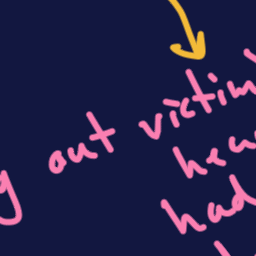 y out victim
he
had